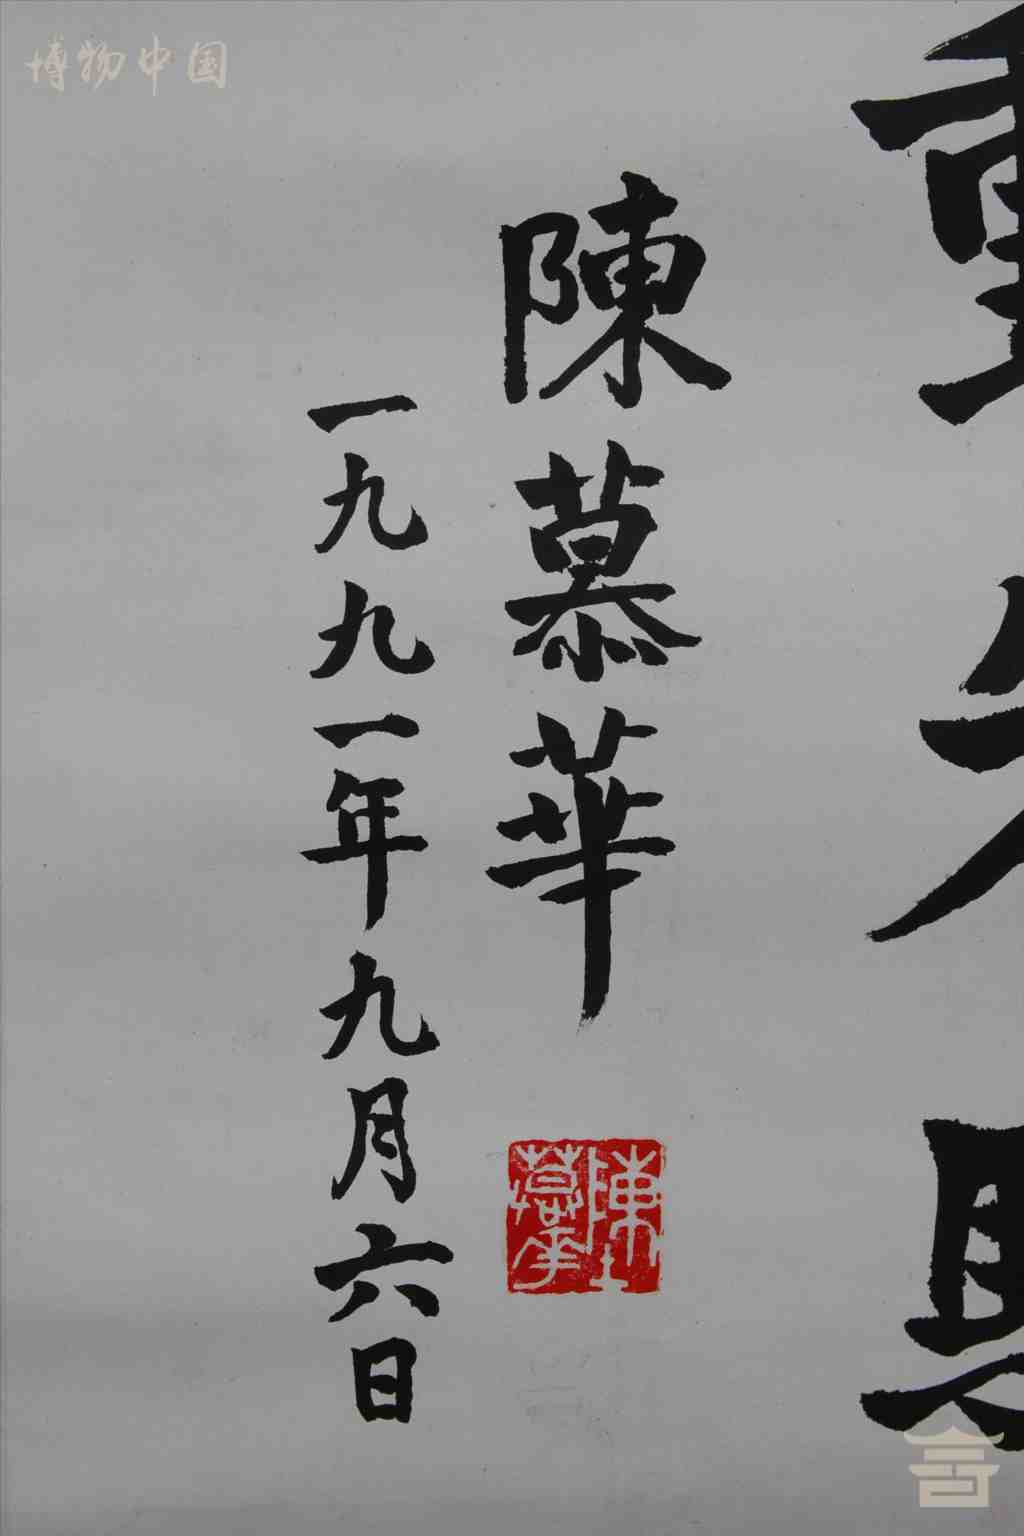 博物中国
陳慕華
一九九一年九月六日
陳慕華